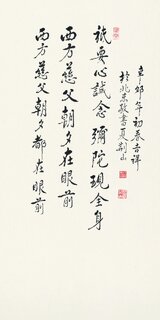 祇要心誠念彌陀現全身
西方慈父朝夕在眼前
西方慈父朝夕都在眼前
辛卯年初春吉祥
於北京敬書夏荆山